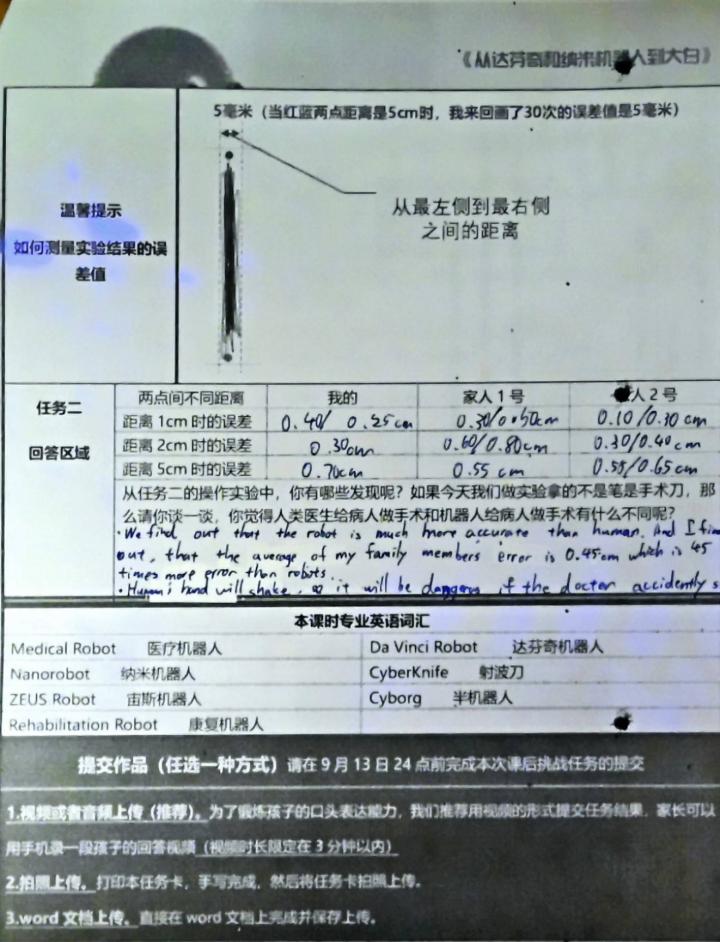 《从达芬奇和纳米机器人到大白》
5毫米（当红蓝两点距离是5cm时，我来回画了30次的误差值是5毫米）
从最左侧到最右侧
之间的距离
温馨提示
如何测量实验结果的误
差值
任务二
回答区域
两点间不同距离 我的 家人1号 人2号
距离1cm时的误差 0.40/ 0.25cm 0.30/0.50cm 0.10/0.30cm
距离2cm时的误差 0.30cm 0.60/0.80cm 0.30/0.40cm
距离5cm时的误差 0.70cm 0.55 cm 0.55/0.65cm
从任务二的操作实验中，你有哪些发现呢？如果今天我们做实验拿的不是笔是手术刀，那
么请你谈一谈，你觉得人类医生给病人做手术和机器人给病人做手术有什么不同呢？
·We find out that the robot is much more accurate than human. And I
out, that the average of my family members error is 0.45cm which is 45
times more error than robots.
·Human's hand will shake, so it will be dangerous if the doctor accidently
本课时专业英语词汇
Medical Robot 医疗机器人 Da Vinci Robot 达芬奇机器人
Nanorobot 纳米机器人 CyberKnife 射波刀
ZEUS Robot 宙斯机器人 Cyborg 半机器人
Rehabilitation Robot 康复机器人
提交作品（任选一种方式）请在9月13日24点前完成本次课后挑战任务的提交
1.视频或者音频上传（推荐）。为了锻炼孩子的口头表达能力，我们推荐用视频的形式提交任务结果，家长可以
用手机录一段孩子的回答视频（视频时长限定在3分钟以内）
2.拍照上传。打印本任务卡，手写完成，然后将任务卡拍照上传。
3.word文档上传。直接在word文档上完成并保存上传。